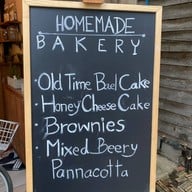 HOMEMADE
BAKERY
• Old Time Bud Cake
• Honey Cheese Cake
• Brownies
• Mixed Beery
Pannacotta